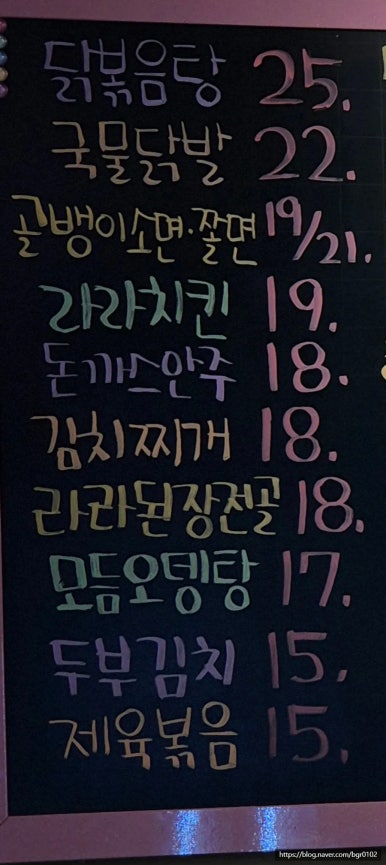 닭볶음탕 25.
국물닭발 22.
골뱅이소면·쫄면 19/21.
라라치킨 19.
돈까스안주 18.
김치찌개 18.
라라된장전골 18.
모듬오뎅탕 17.
두부김치 15.
제육볶음 15.
https://blog.naver.com/bgr0102